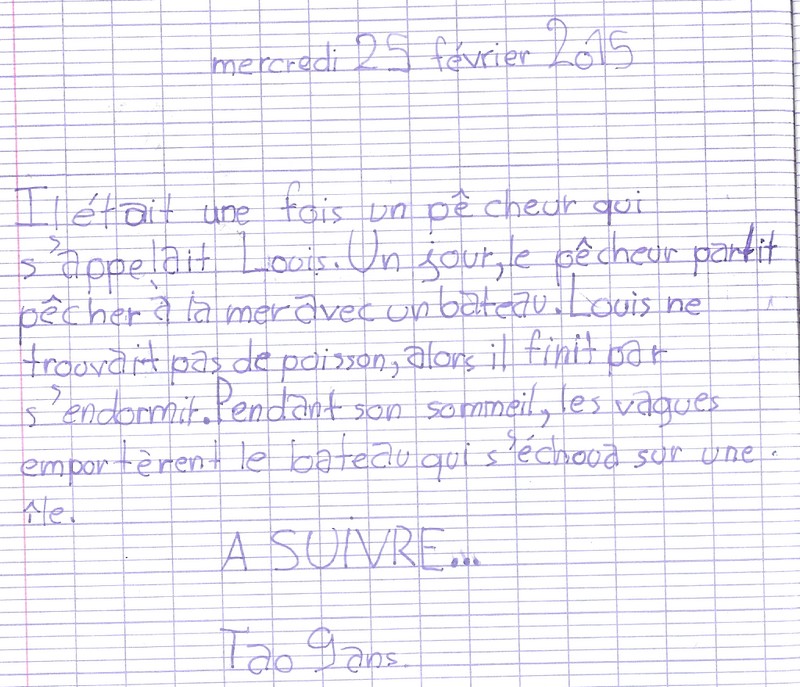 mercredi 25 février 2015
Il était une fois un pêcheur qui
s'appelait Louis. Un jour, le pêcheur partit
pêcher à la mer avec un bateau. Louis ne
trouvait pas de poisson, alors il finit par
s'endormir. Pendant son sommeil, les vagues
emportèrent le bateau qui s'échoua sur une
île.
A SUIVRE...
Tao 9 ans.